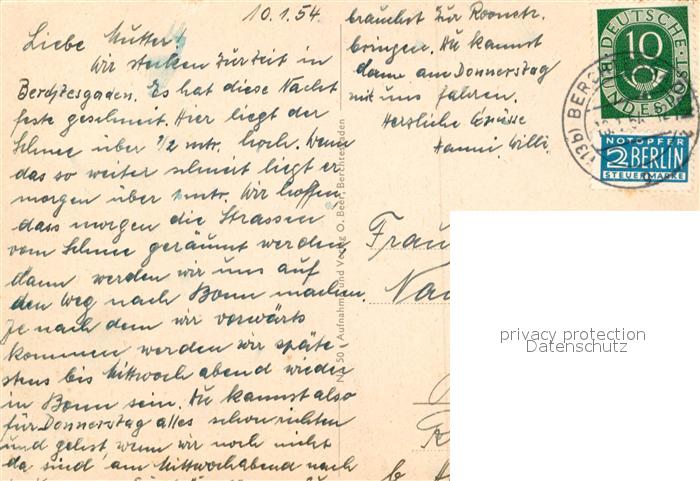 10.1.54.
Liebe Mutter!
Wir stecken zur Zeit in
Berchtesgaden. Es hat diese Nacht
feste geschneit. Hier liegt der
Schnee über 1/2 mtr. hoch. Wenn
das so weiter schneit liegt er
morgen über 1 mtr. Wir hoffen,
dass morgen die Strassen
vom Schnee geräumt werden,
dann werden wir uns auf
den Weg nach Bonn machen.
Je nach dem wir vorwärts
kommen werden wir späte-
stens bis Mittwoch abend wieder
in Bonn sein. Du kannst also
für Donnerstag alles schon richten
und gehst, wenn wir noch nicht
da sind am Mittwochabend nach
brauchst zur Roonstr.
bringen. Du kannst
dann am Donnerstag
mit uns fahren.
Herzliche Grüsse
Hanni, Willi.
50 Aufnahme und Verlag O. Beer, Berchtesgaden
DEUTSCHE BUNDESPOST
10
(13b) BERCH
NOTOPFER
2 BERLIN
STEUERMARKE
Frau
privacy protection
Datenschutz